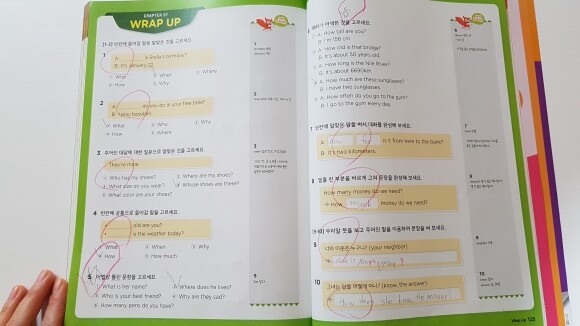 CHAPTER 07
WRAP UP
[1-2] 빈칸에 들어갈 말로 알맞은 것을 고르세요.
1
A: is Stella's birthday?
B: It's January 22.
① What ② When ③ Where
④ How ⑤ Why
2
A: do you do in your free time?
B: I play baseball.
① What ② Who ③ When
④ How ⑤ Where
3 주어진 대답에 대한 질문으로 알맞은 것을 고르세요.
They're mine.
① Who has my shoes? ② Where are my shoes?
③ What size do you wear? ④ Whose shoes are these?
⑤ What color are your shoes?
4 빈칸에 공통으로 들어갈 말을 고르세요.
old are you?
is the weather today?
① What ② When ③ Why
④ How ⑤ How much
5 어법상 틀린 문장을 고르세요.
① What is her name? ② Where does he lives?
③ Who is your best friend? ④ Why are they sad?
⑤ How many pens do you have?
6 어색한 것을 고르세요.
① A: How tall are you?
B: I'm 158 cm.
② A: How old is that bridge?
B: It's about 50 years old.
③ A: How long is the Nile River?
B: It's about 6690km.
④ A: How much are these sunglasses?
B: I have two sunglasses.
⑤ A: How often do you go to the gym?
B: I go to the gym every day.
7 빈칸에 알맞은 말을 써서 대화를 완성해 보세요.
A: How far is it from here to the bank?
B: It's two kilometers.
8 밑줄 친 부분을 바르게 고쳐 문장을 완성해 보세요.
How many money do we need?
→ How much money do we need?
[9-10] 우리말 뜻을 보고 주어진 말을 이용하여 문장을 써 보세요.
9
너의 이웃은 누구니? (your neighbor)
10
그녀는 답을 어떻게 아니? (know, the answer)
→ How does she
the answer?
Wrap Up 125